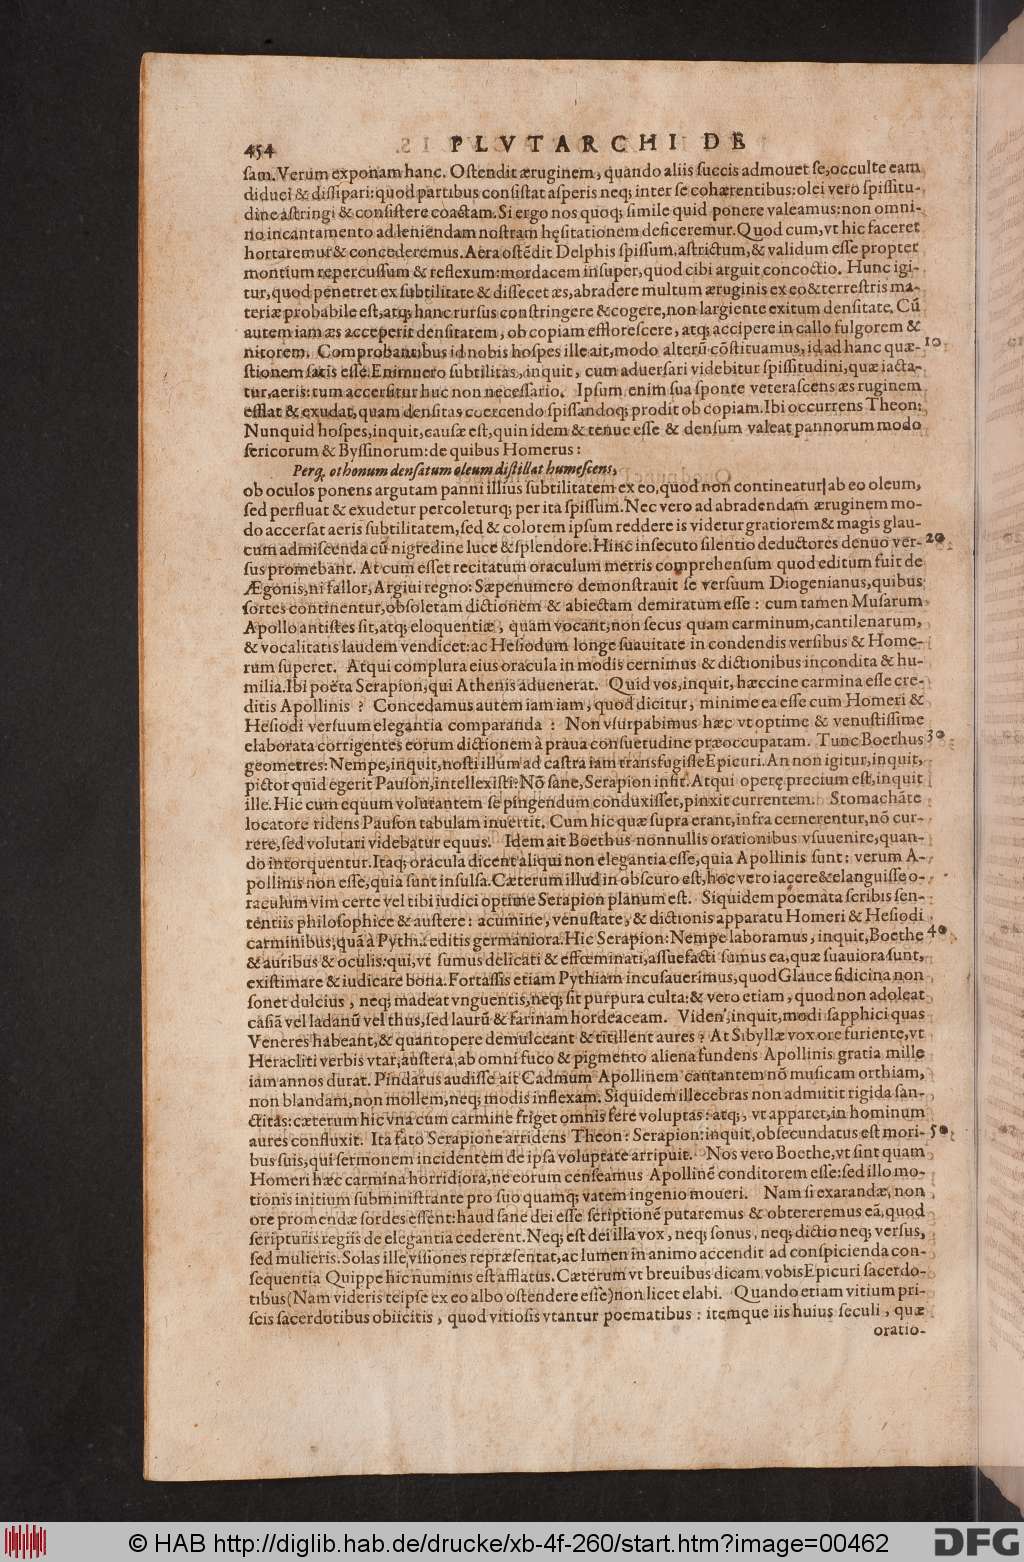 454 PLVTARCHI DE
sam. Verum exponam hanc. Ostendit æruginem, quando aliis succis admouet se, occulte eam
diduci & dissipari: quod partibus consistat asperis neq; inter se cohærentibus: olei vero spissitu-
dine astringi & consistere coactam. Si ergo nos quoq; simile quid ponere valeamus: non omni-
no incantamento ad leniendam nostram hęsitationem deficeremur. Quod cum, vt hic faceret
hortaremur & concederemus. Aera ostēdit Delphis spissum, astrictum, & validum esse propter
montium repercussum & reflexum: mordacem insuper, quod cibi arguit concoctio. Hunc igi-
tur, quod penetret ex subtilitate & dissecet æs, abradere multum æruginis ex eo & terrestris ma-
teriæ probabile est, atq; hanc rursus constringere & cogere, non largiente exitum densitate. Cū
autem iam æs acceperit densitatem, ob copiam efflorescere, atq; accipere in callo fulgorem &
nitorem. Comprobantibus id nobis hospes ille ait, modo alterū cōstituamus, id ad hanc quæ- 10
stionem satis esse. Enimuero subtilitas, inquit, cum aduersari videbitur spissitudini, quæ iacta-
tur, aeris: tum accersitur huc non necessario. Ipsum enim sua sponte veterascens æs ruginem
efflat & exudat, quam densitas coercendo spissandoq; prodit ob copiam. Ibi occurrens Theon:
Nunquid hospes, inquit, causæ est, quin idem & tenue esse & densum valeat pannorum modo
sericorum & Byssinorum: de quibus Homerus:
Perq; othonum densatum oleum distillat humescens,
ob oculos ponens argutam panni illius subtilitatem ex eo, quod non contineatur ab eo oleum,
sed perfluat & exudetur percoleturq; per ita spissum. Nec vero ad abradendam æruginem mo-
do accersat aeris subtilitatem, sed & colorem ipsum reddere is videtur gratiorem & magis glau-
cum admiscenda cū nigredine luce & splendore. Hinc insecuto silentio deductores denuo ver- 20
sus promebant. At cum esset recitatum oraculum metris comprehensum quod editum fuit de
Ægonis, ni fallor, Argiui regno: Sæpenumero demonstrauit se versuum Diogenianus, quibus
sortes continentur, obsoletam dictionem & abiectam demiratum esse: cum tamen Musarum
Apollo antistes sit, atq; eloquentiæ, quam vocant, non secus quam carminum, cantilenarum,
& vocalitatis laudem vendicet: ac Hesiodum longe suauitate in condendis versibus & Home-
rum superet. Atqui complura eius oracula in modis cernimus & dictionibus incondita & hu-
milia. Ibi poëta Serapion, qui Athenis aduenerat. Quid vos, inquit, hæccine carmina esse cre-
ditis Apollinis? Concedamus autem iam iam, quod dicitur, minime ea esse cum Homeri &
Hesiodi versuum elegantia comparanda: Non vsurpabimus hæc vt optime & venustissime
elaborata corrigentes eorum dictionem à praua consuetudine præoccupatam. Tunc Boethus 30
geometres: Nempe, inquit, nosti illum ad castra iam transfugisse Epicuri. An non igitur, inquit,
pictor quid egerit Pauson, intellexisti: Nō sane, Serapion infit. Atqui operę precium est, inquit
ille. Hic cum equum volutantem se pingendum conduxisset, pinxit currentem. Stomachāte
locatore ridens Pauson tabulam inuertit. Cum hic quæ supra erant, infra cernerentur, nō cur-
rere, sed volutari videbatur equus. Idem ait Boethus nonnullis orationibus vsuuenire, quan-
do intorquentur. Itaq; oracula dicent aliqui non elegantia esse, quia Apollinis sunt: verum A-
pollinis non esse, quia sunt insulsa. Cæterum illud in obscuro est, hoc vero iacere & elanguisse o-
raculum vim certe vel tibi iudici optime Serapion planum est. Siquidem poemata scribis sen-
tentiis philosophice & austere: acumine, venustate, & dictionis apparatu Homeri & Hesiodi
carminibus, quā à Pythia editis germaniora. Hic Serapion: Nempe laboramus, inquit, Boethe 40
& auribus & oculis: qui, vt sumus delicati & effœminati, assuefacti sumus ea, quæ suauiora sunt,
existimare & iudicare bona. Fortassis etiam Pythiam incusauerimus, quod Glauce fidicina non
sonet dulcius, neq; madeat vnguentis, neq; sit purpura culta: & vero etiam, quod non adoleat
casiā vel ladanū vel thus, sed laurū & farinam hordeaceam. Viden', inquit, modi sapphici quas
Veneres habeant, & quantopere demulceant & titillent aures? At Sibyllæ vox ore furiente, vt
Heracliti verbis vtar, austera, ab omni fuco & pigmento aliena fundens Apollinis gratia mille
iam annos durat. Pindarus audisse ait Cadmum Apollinem cantantem nō musicam orthiam,
non blandam, non mollem, neq; modis inflexam. Siquidem illecebras non admittit rigida san-
ctitas: cæterum hic vna cum carmine friget omnis fere voluptas: atq;, vt apparet, in hominum
aures confluxit. Ita fato Serapione arridens Theon: Serapion: inquit, obsecundatus est mori- 50
bus suis, qui sermonem incidentem de ipsa voluptate arripuit. Nos vero Boethe, vt sint quam
Homeri hæc carmina horridiora, ne eorum censeamus Apollinē conditorem esse: sed illo mo-
tionis initium subministrante pro suo quamq; vatem ingenio moueri. Nam si exarandæ, non
ore promendæ sordes essent: haud sane dei esse scriptionē putaremus & obtereremus eā, quod
scripturis regiis de elegantia cederent. Neq; est dei illa vox, neq; sonus, neq; dictio neq; versus,
sed mulieris. Solas ille visiones repræsentat, ac lumen in animo accendit ad conspicienda con-
sequentia Quippe hic numinis est afflatus. Cæterum vt breuibus dicam vobis Epicuri sacerdo-
tibus (Nam videris teipse ex eo albo ostendere esse) non licet elabi. Quando etiam vitium pri-
scis sacerdotibus obiicitis, quod vitiosis vtantur poematibus: itemque iis huius seculi, quæ
oratio-
© HAB http://diglib.hab.de/drucke/xb-4f-260/start.htm?image=00462 DFG